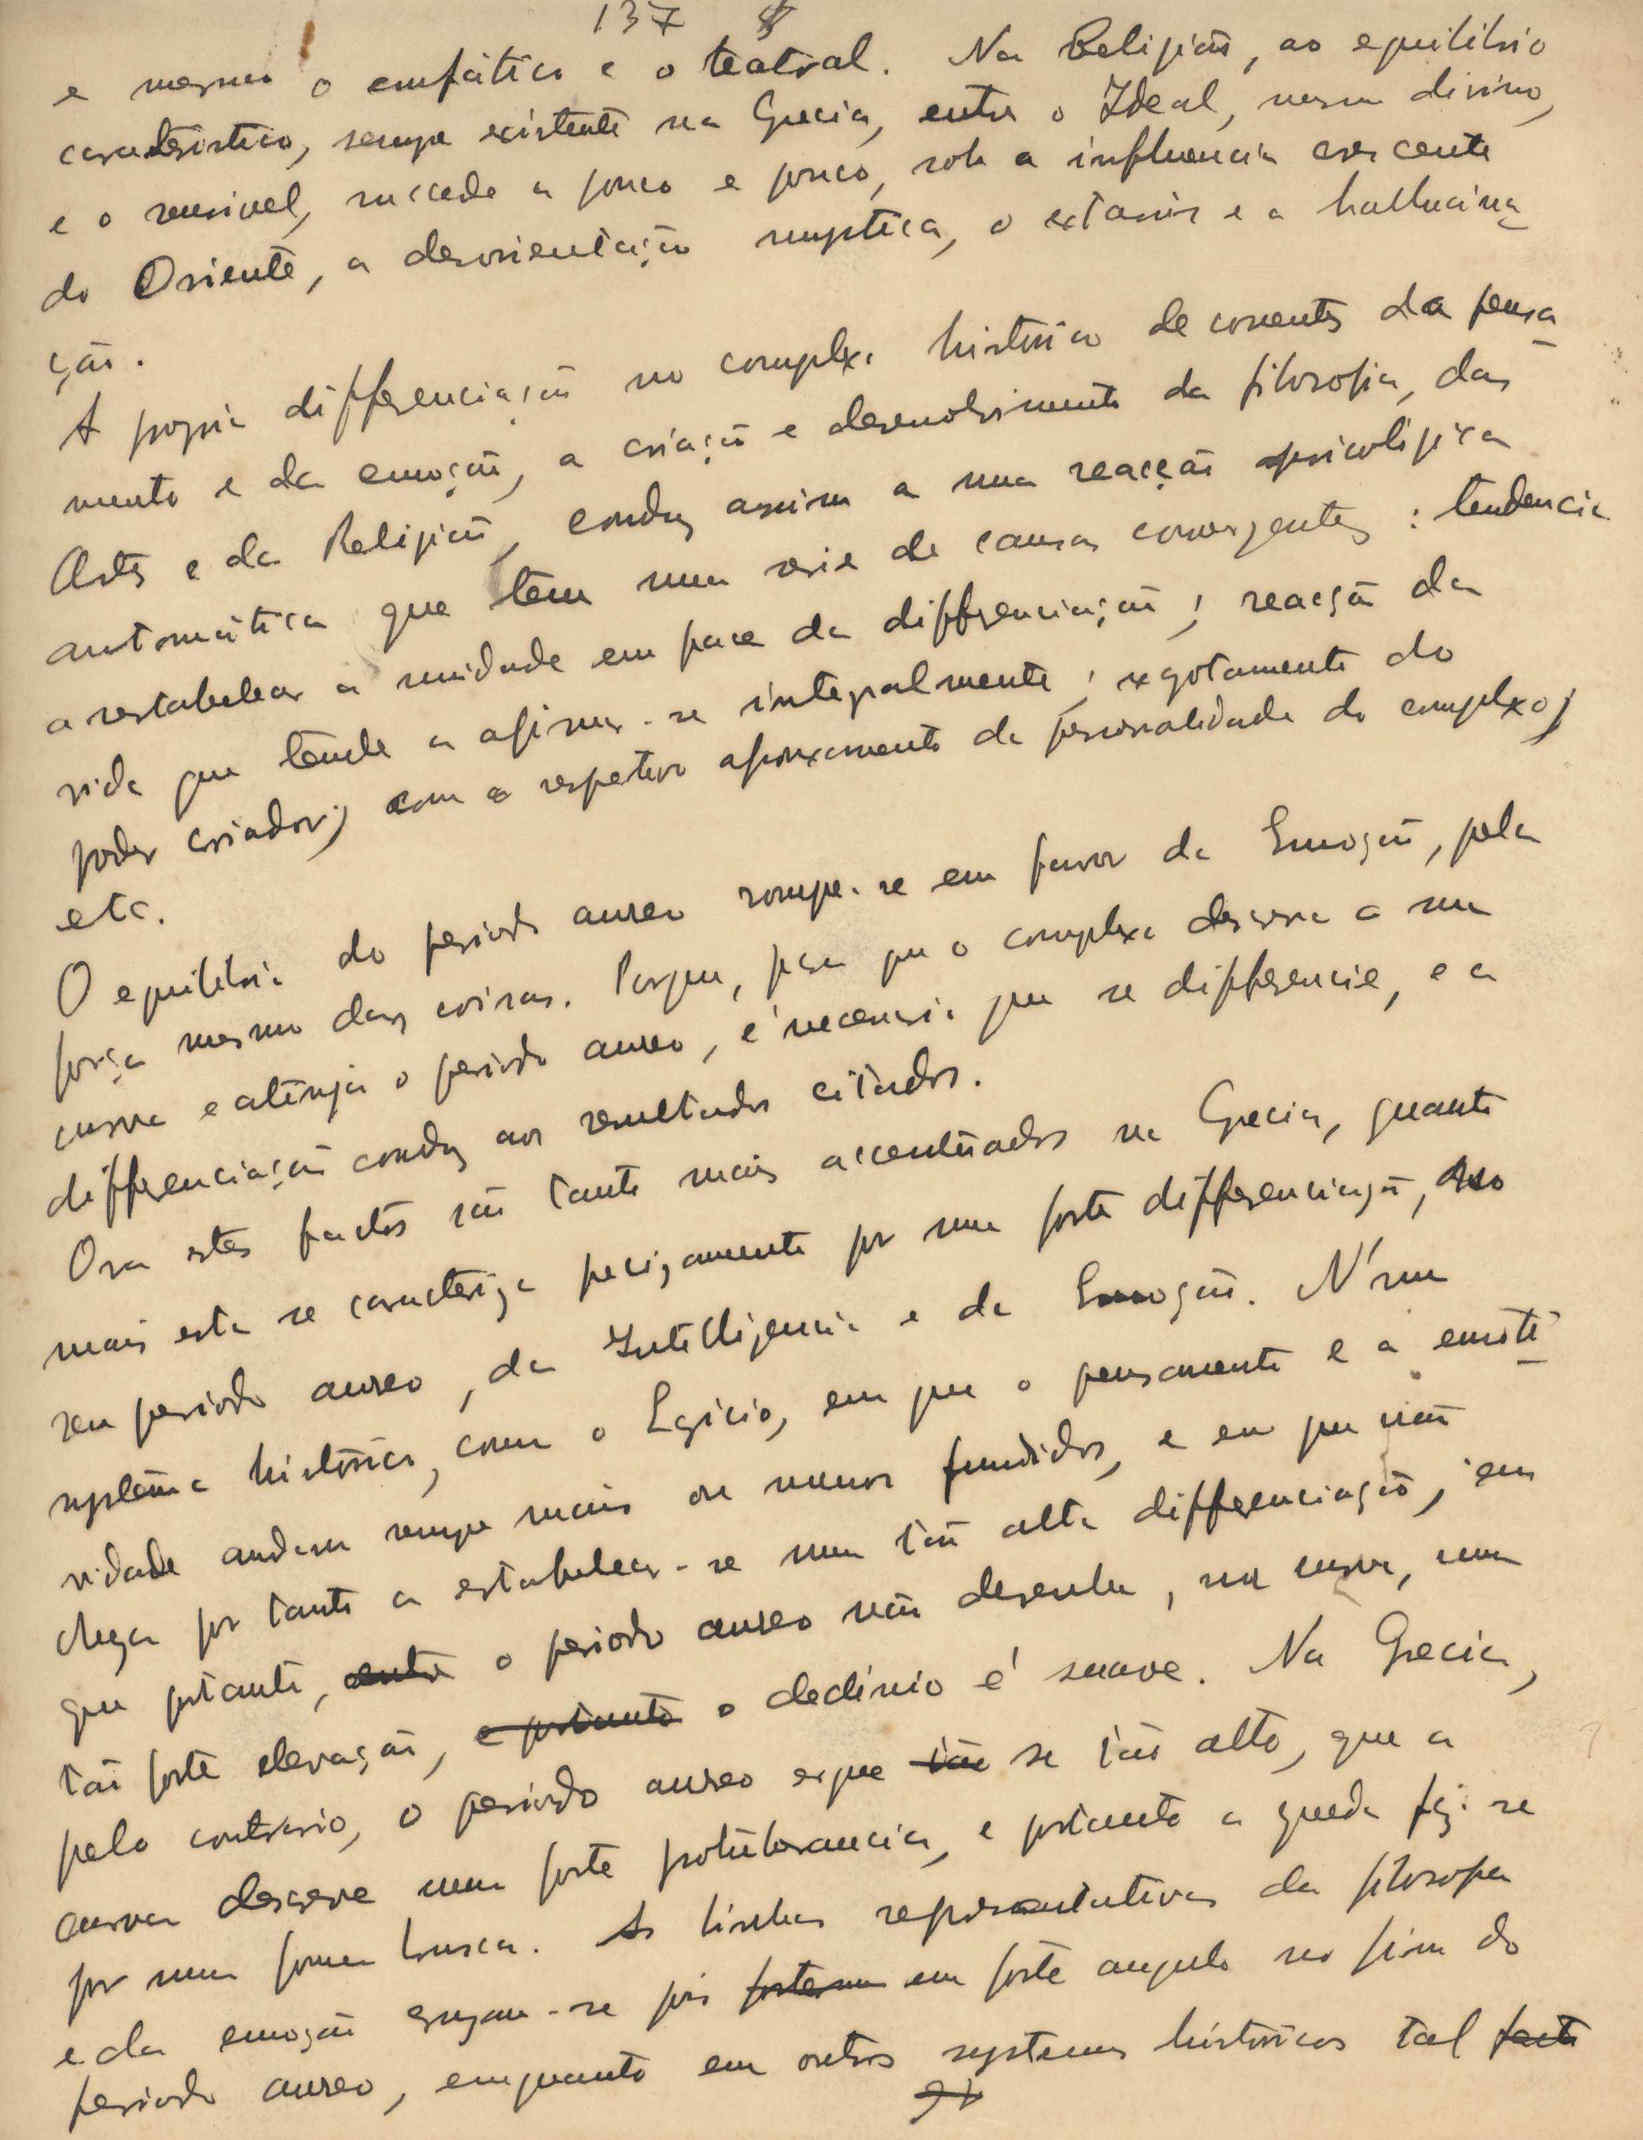 137
e mesmo o emfatico e o teatral. Na Religião, ao equilibrio
caracteristico, sempre existente na Grecia, entre o Ideal, mesmo divino,
e o sensivel, succede a pouco e pouco, sob a influencia crescente
do Oriente, a desorientação mystica, o extasis e a hallucina
ção.
A propria differenciação no complexo historico de correntes da pensa
mento e da emoção, a criação e desenvolvimento da filosofia, das
Artes e da Religião, conduz assim a uma reacção psicologica
automatica que tem uma serie de causas convergentes: tendencia
a restabelecer a unidade em face da differenciação; reacção da
vida que tende a afirmar-se integralmente; exgotamento do
poder criador; com o respetivo afrouxamento da personalidade do complexo;
etc.
O equilibrio do periodo aureo rompe-se em favor da Emoção, pela
força mesmo das coisas. Porque, para que o complexo descreva a sua
curva e atinja o periodo aureo, é necessario que se differencie, e a
differenciação conduz aos resultados citados.
Ora estes factos são tanto mais accentuados na Grecia, quanto
mais esta se caracteriza precizamente por uma forte differenciação, no
seu periodo aureo, da Intelligencia e da Emoção. N'um
systema historico, como o Egicio, em que o pensamento e a emoti
vidade andam sempre mais ou menos fundidos, e em que não
chega por tanto a estabelecer-se uma tão alta differenciação, em
que portanto, entre o periodo aureo não desenha, na curva, uma
tão forte elevação, e portanto o declinio é suave. Na Grecia,
pelo contrario, o periodo aureo ergue tão se tão alto, que a
curva descreve uma forte protuberancia, e portanto a queda fez-se
por uma forma brusca. As linhas representativas da filosofia
e da emoção cruzam-se pois em forte angulo no fim do
periodo aureo, emquanto em outros systemas historicos tal facto